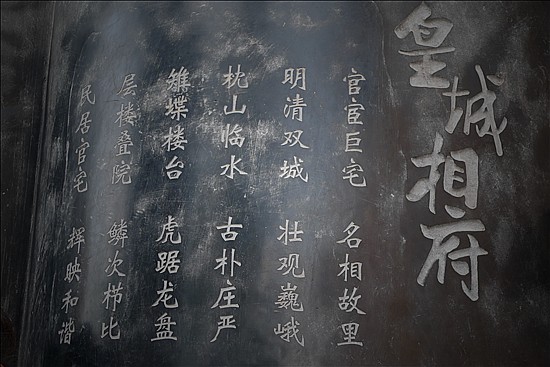 皇城相府
官宦巨宅 名相故里
明清双城 壮观巍峨
枕山临水 古朴庄严
雉堞楼台 虎踞龙盘
层楼叠院 鳞次栉比
民居官宅 辉映和谐